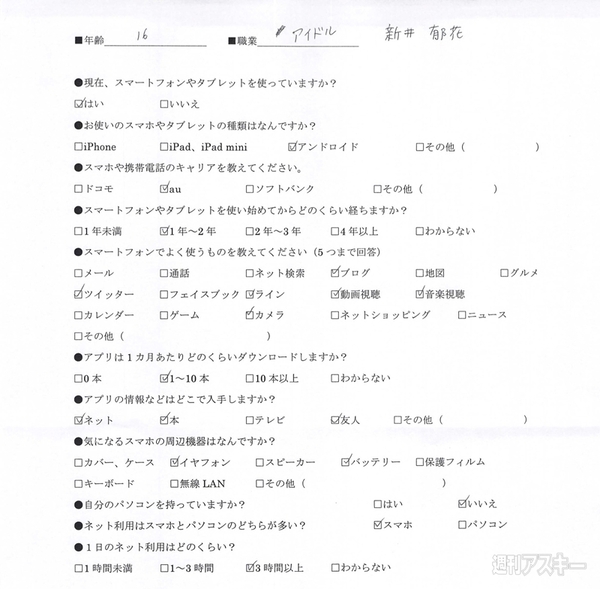 ■年齢 16 ■職業 アイドル 新井 郁花
●現在、スマートフォンやタブレットを使っていますか？
☑はい □いいえ
●お使いのスマホやタブレットの種類はなんですか？
□iPhone □iPad、iPad mini ☑アンドロイド □その他（ ）
●スマホや携帯電話のキャリアを教えてください。
□ドコモ ☑au □ソフトバンク □その他（ ）
●スマートフォンやタブレットを使い始めてからどのくらい経ちますか？
□1年未満 ☑1年～2年 □2年～3年 □4年以上 □わからない
●スマートフォンでよく使うものを教えてください（5つまで回答）
□メール □通話 □ネット検索 ☑ブログ □地図 □グルメ
☑ツイッター □フェイスブック ☑ライン ☑動画視聴 ☑音楽視聴
□カレンダー □ゲーム ☑カメラ □ネットショッピング □ニュース
□その他（ ）
●アプリは1カ月あたりどのくらいダウンロードしますか？
□0本 ☑1～10本 □10本以上 □わからない
●アプリの情報などはどこで入手しますか？
☑ネット ☑本 □テレビ ☑友人 □その他（ ）
●気になるスマホの周辺機器はなんですか？
□カバー、ケース ☑イヤフォン □スピーカー ☑バッテリー □保護フィルム
□キーボード □無線LAN □その他（ ）
●自分のパソコンを持っていますか？ □はい ☑いいえ
●ネット利用はスマホとパソコンのどちらが多い？ ☑スマホ □パソコン
●１日のネット利用はどのくらい？
□1時間未満 □1～3時間 ☑3時間以上 □わからない
週刊アスキー